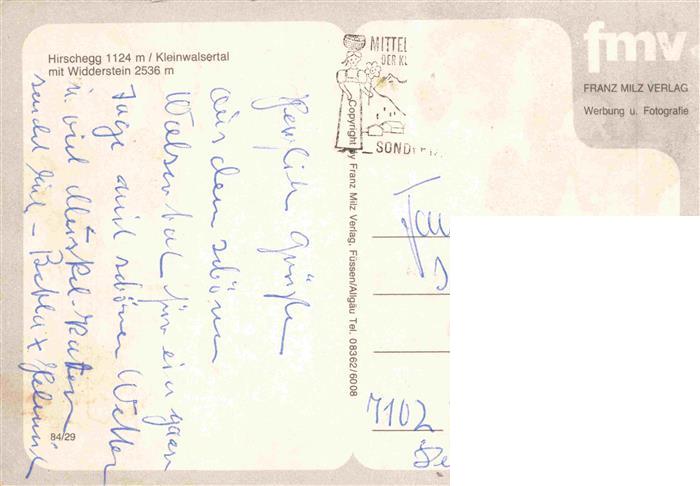 Hirschegg 1124 m / Kleinwalsertal
mit Widderstein 2536 m
Herzlich Grüße
aus dem schönen
Walsertal für ein paar
Tage mit schönem Wetter
u. viel Muskel-Kater
sendet Euch - Betha + Helmut
84/29
MITTEL
DER KL
SONDER
Copyright by Franz Milz Verlag, Füssen/Allgäu Tel. 08362/6008
fmv
FRANZ MILZ VERLAG
Werbung u. Fotografie
Fam
7102